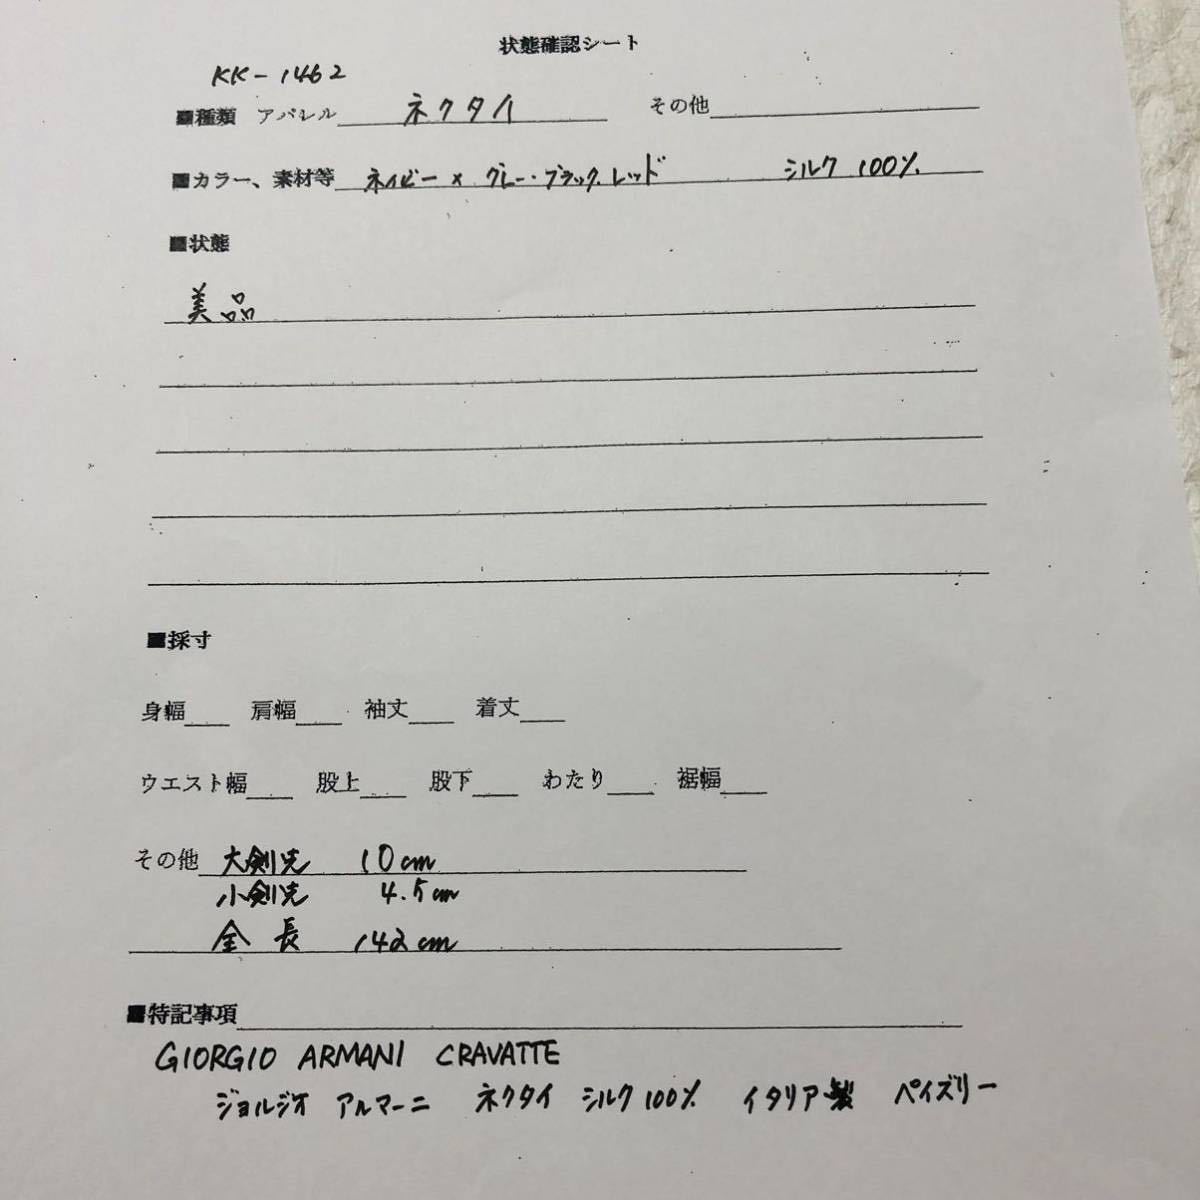 状態確認シート
KK-1462
■種類 アパレル ネクタイ その他
■カラー、素材等 ネイビー × グレー・ブラック.レッド シルク 100%
■状態
美品
■採寸
身幅 肩幅 袖丈 着丈
ウエスト幅 股上 股下 わたり 裾幅
その他 大剣先 10cm
小剣先 4.5cm
全長 142cm
■特記事項
GIORGIO ARMANI CRAVATTE
ジョルジオ アルマーニ ネクタイ シルク100% イタリア製 ペイズリー